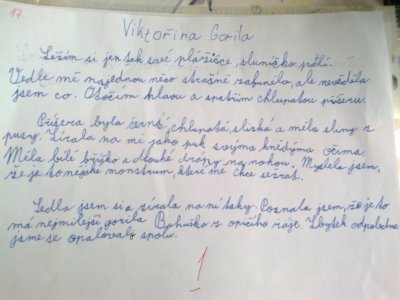 17.
Viktořina Gorila
Ležím si jen tak své plážičce, sluníčko pálí.
Vedle mě najednou něco strašně zafunělo, ale nevěděla
jsem co. Otočím hlavu a spatřím chlupatou příšeru.
Příšera byla černá, chlupatá, slizká a měla sliny z
pusy. Zírala na mě jako puk svýma hnědýma očima
Měla bílé bříško a dlouhé drápy na nohou. Myslela jsem,
že je to nějaké monstrum které mě chce sežrat.
Sedla jsem si a zírala na ni taky. Poznala jsem, že je to
má nejmilejší gorila Bohuško z opičího ráje. Zbytek odpoledne
jsme se opalovali spolu.
1